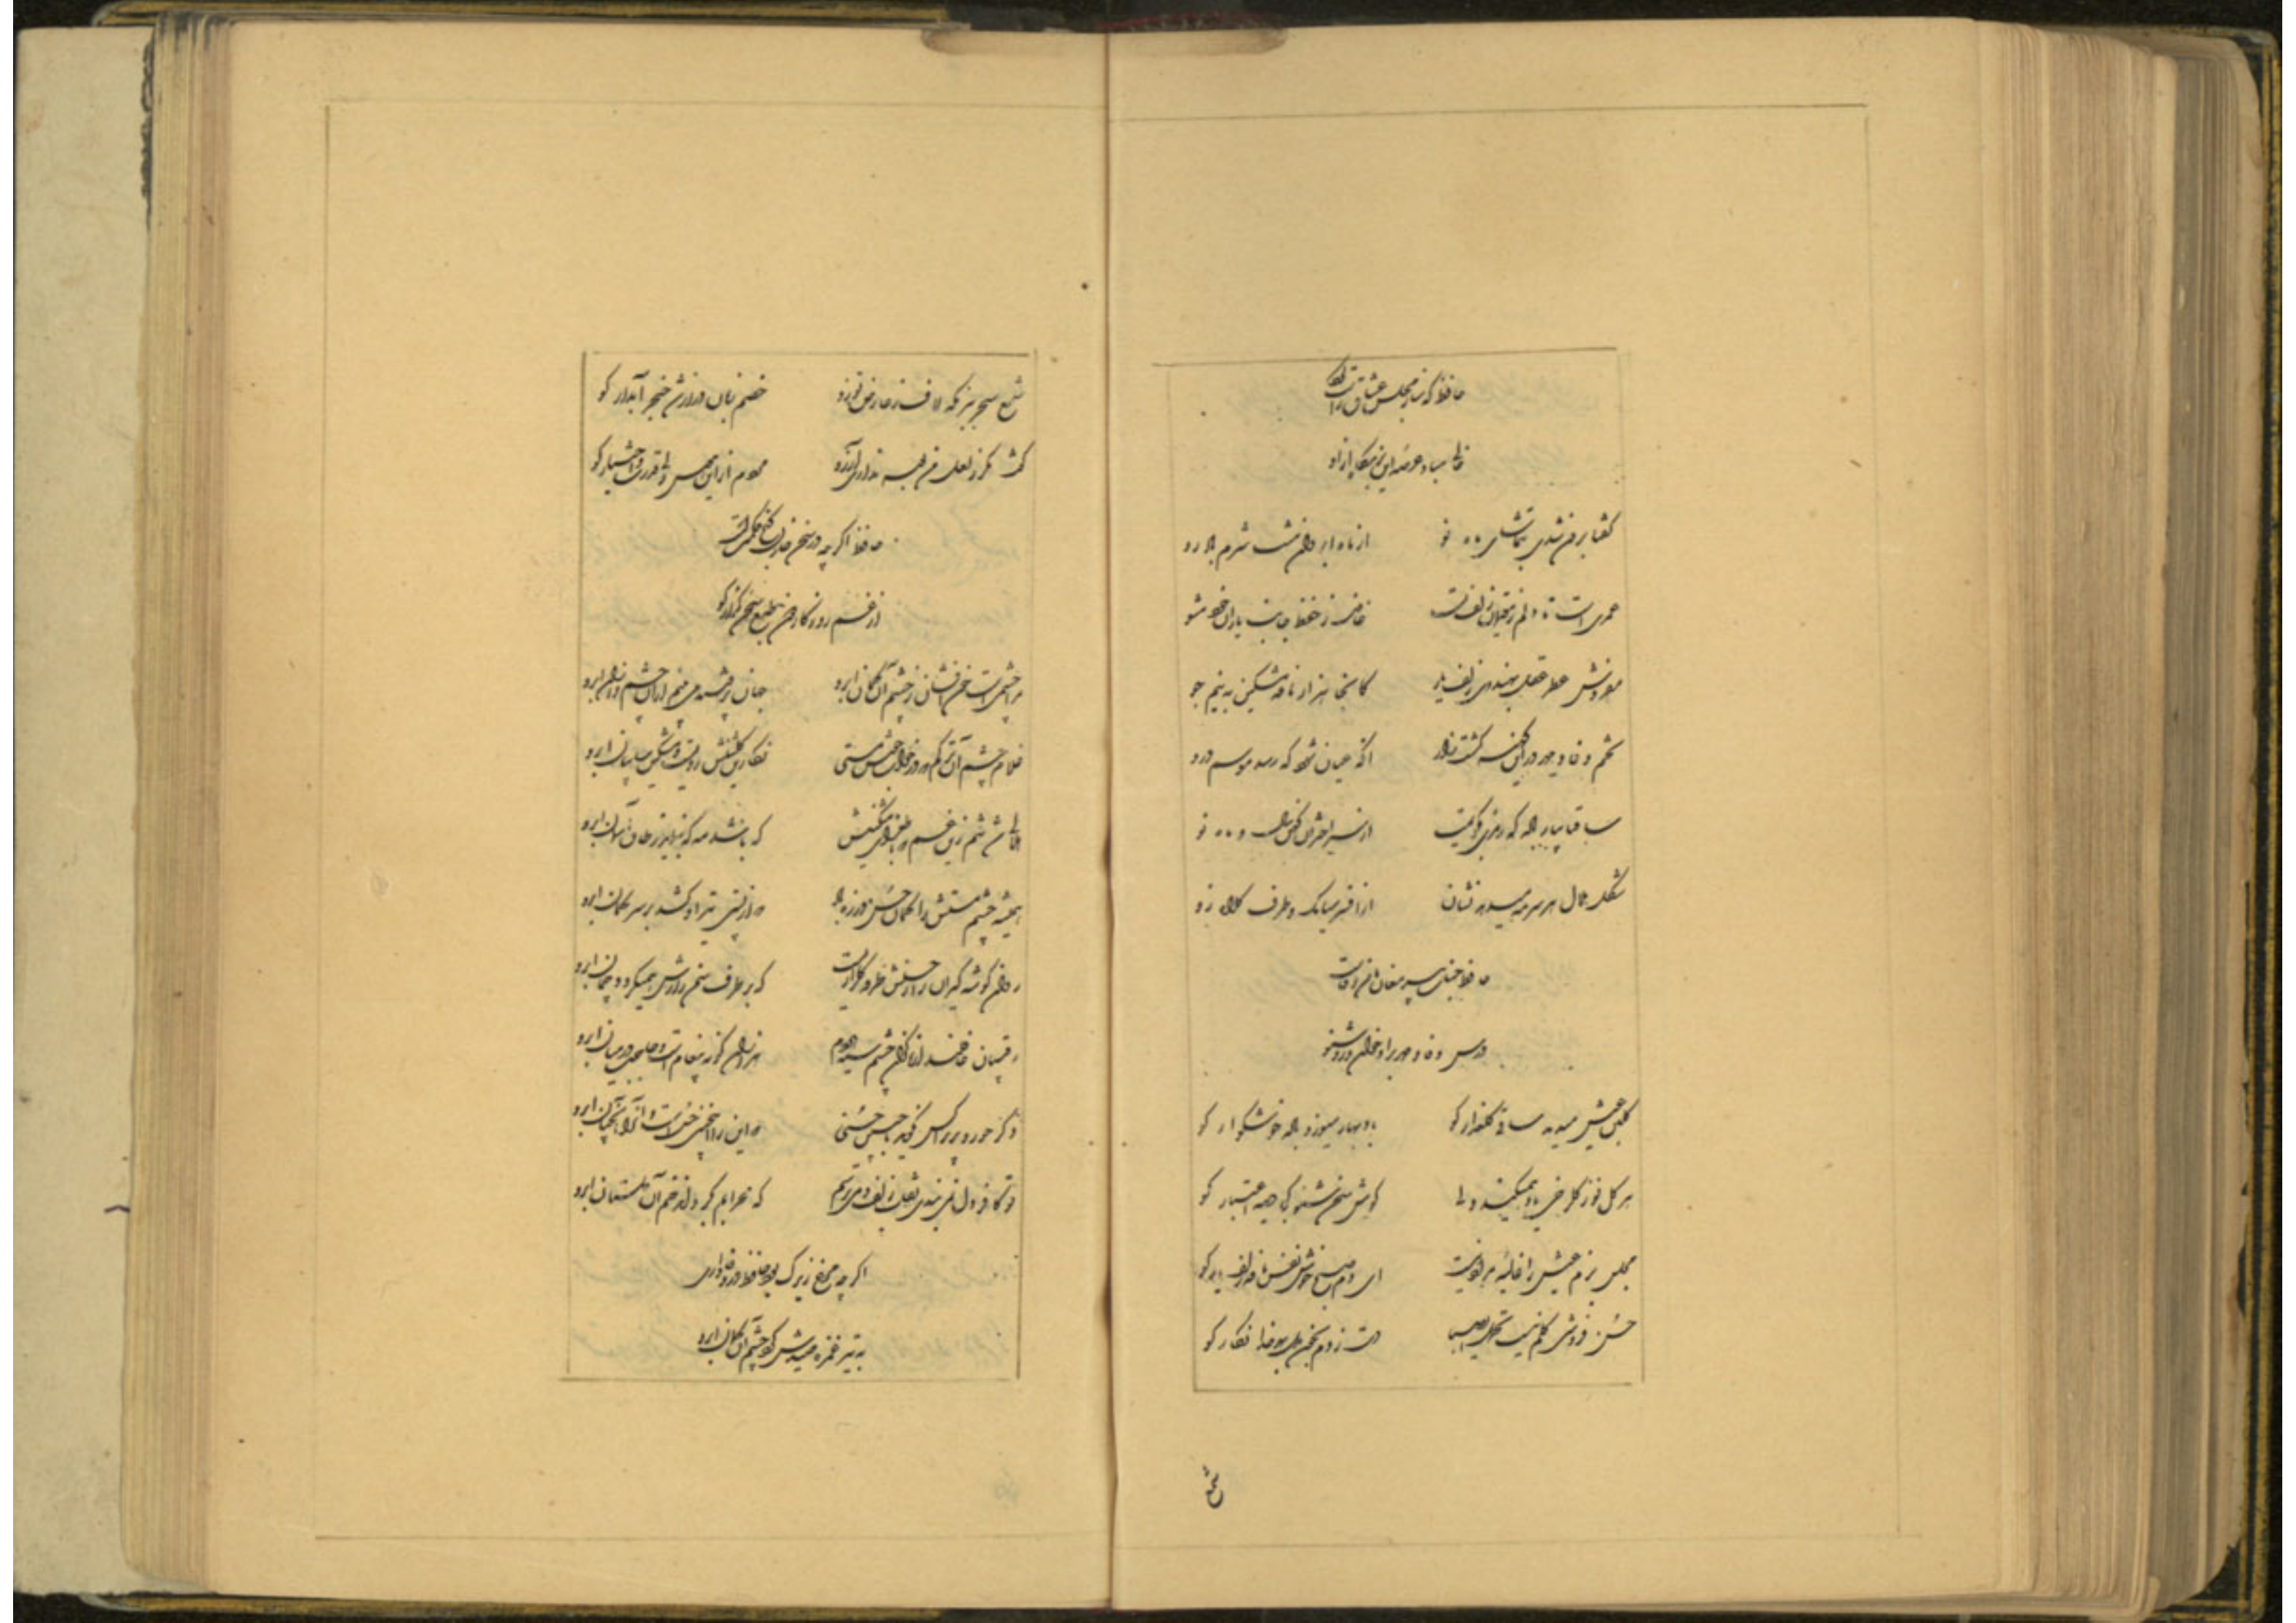 حافظ که ساز مجلس عشاق راست کرد
خالی مباد عرصه این بزمگاه از او
گفتا برون شدی بتماشای ماه نو از ماه ابروان منت شرم باد رو
عمریست تا دلم ز مقیمان زلف تست غافل ز حفظ جانب یاران خود مشو
مفروش عطر عقل بهندوی زلف یار کانجا هزار نافه مشکین به نیم جو
تخم وفا و مهر در این کهنه کشته زار آنگه عیان شود که رسد موسم درو
ساقی بیار باده که رمزی بگویمت از سیر اختران کهن سال و ماه نو
شکل هلال هر سر مه میدهد نشان از افسر سیامک و طرف کلاه زو
حافظ جناب پیر مغان مامن وفاست
درس وفا و مهر بر او خوان و زو شنو
گلبن عیش میدمد ساقی گلعذار کو باد بهار میوزد باده خوشگوار کو
هر گل نو ز گلرخی یاد همیکند ولی گوش سخن شنو کجا دیده اعتبار کو
مجلس بزم عیش را غالیه مراد نیست ای دم صبح خوش نفس نافه زلف یار کو
حسن فروشی گلم نیست تحمل ای صبا دست زدم بخون دل بهر خدا نگار کو
شمع
شمع سحر ز بزم که لاف ز عارض تو زد خصم زبان دراز شد خنجر آبدار کو
گفت مگر ز لعل من بوسه نداری آرزو مردم از این هوس ولی قدرت و اختیار کو
حافظ اگر چه در سخن خازن گنج حکمت است
از غم روزگار دون طبع سخن گزار کو
مرا چشمی است خون افشان ز چشم آن کمان ابرو جهان پر فتنه می بینم از آن چشم و از آن ابرو
غلام چشم آن ترکم که در خواب خوش مستی نگارین گلشنش رویست و مشکین سایبان ابرو
هلالی شد تنم زین غم که با طغرای مشکینش که باشد مه که بنماید ز طاق آسمان ابرو
همیشه چشم مستش را کمان حسن در زه باد که از پستی تیر او کشد بر سر کمان ابرو
روان گوشه گیران را جبینش طرفه گلزاریست که بر طرف سمن زارش همیگردد چمان ابرو
رقیبان غافلند از ما کزان چشم سیه هر دم هزاران گونه پیغام است و حاجب در میان ابرو
دگر حور و پری را کس نگوید با چنین حسنی که این را این چنین چشم است و آنرا آنچنان ابرو
تو کافر دل نمی بندی نقاب زلف و می ترسم که محرابم بگرداند خم آن دلستان ابرو
اگر چه مرغ زیرک بود حافظ در وفاداری
به تیر غمزه صیدش کرد چشم آن کمان ابرو